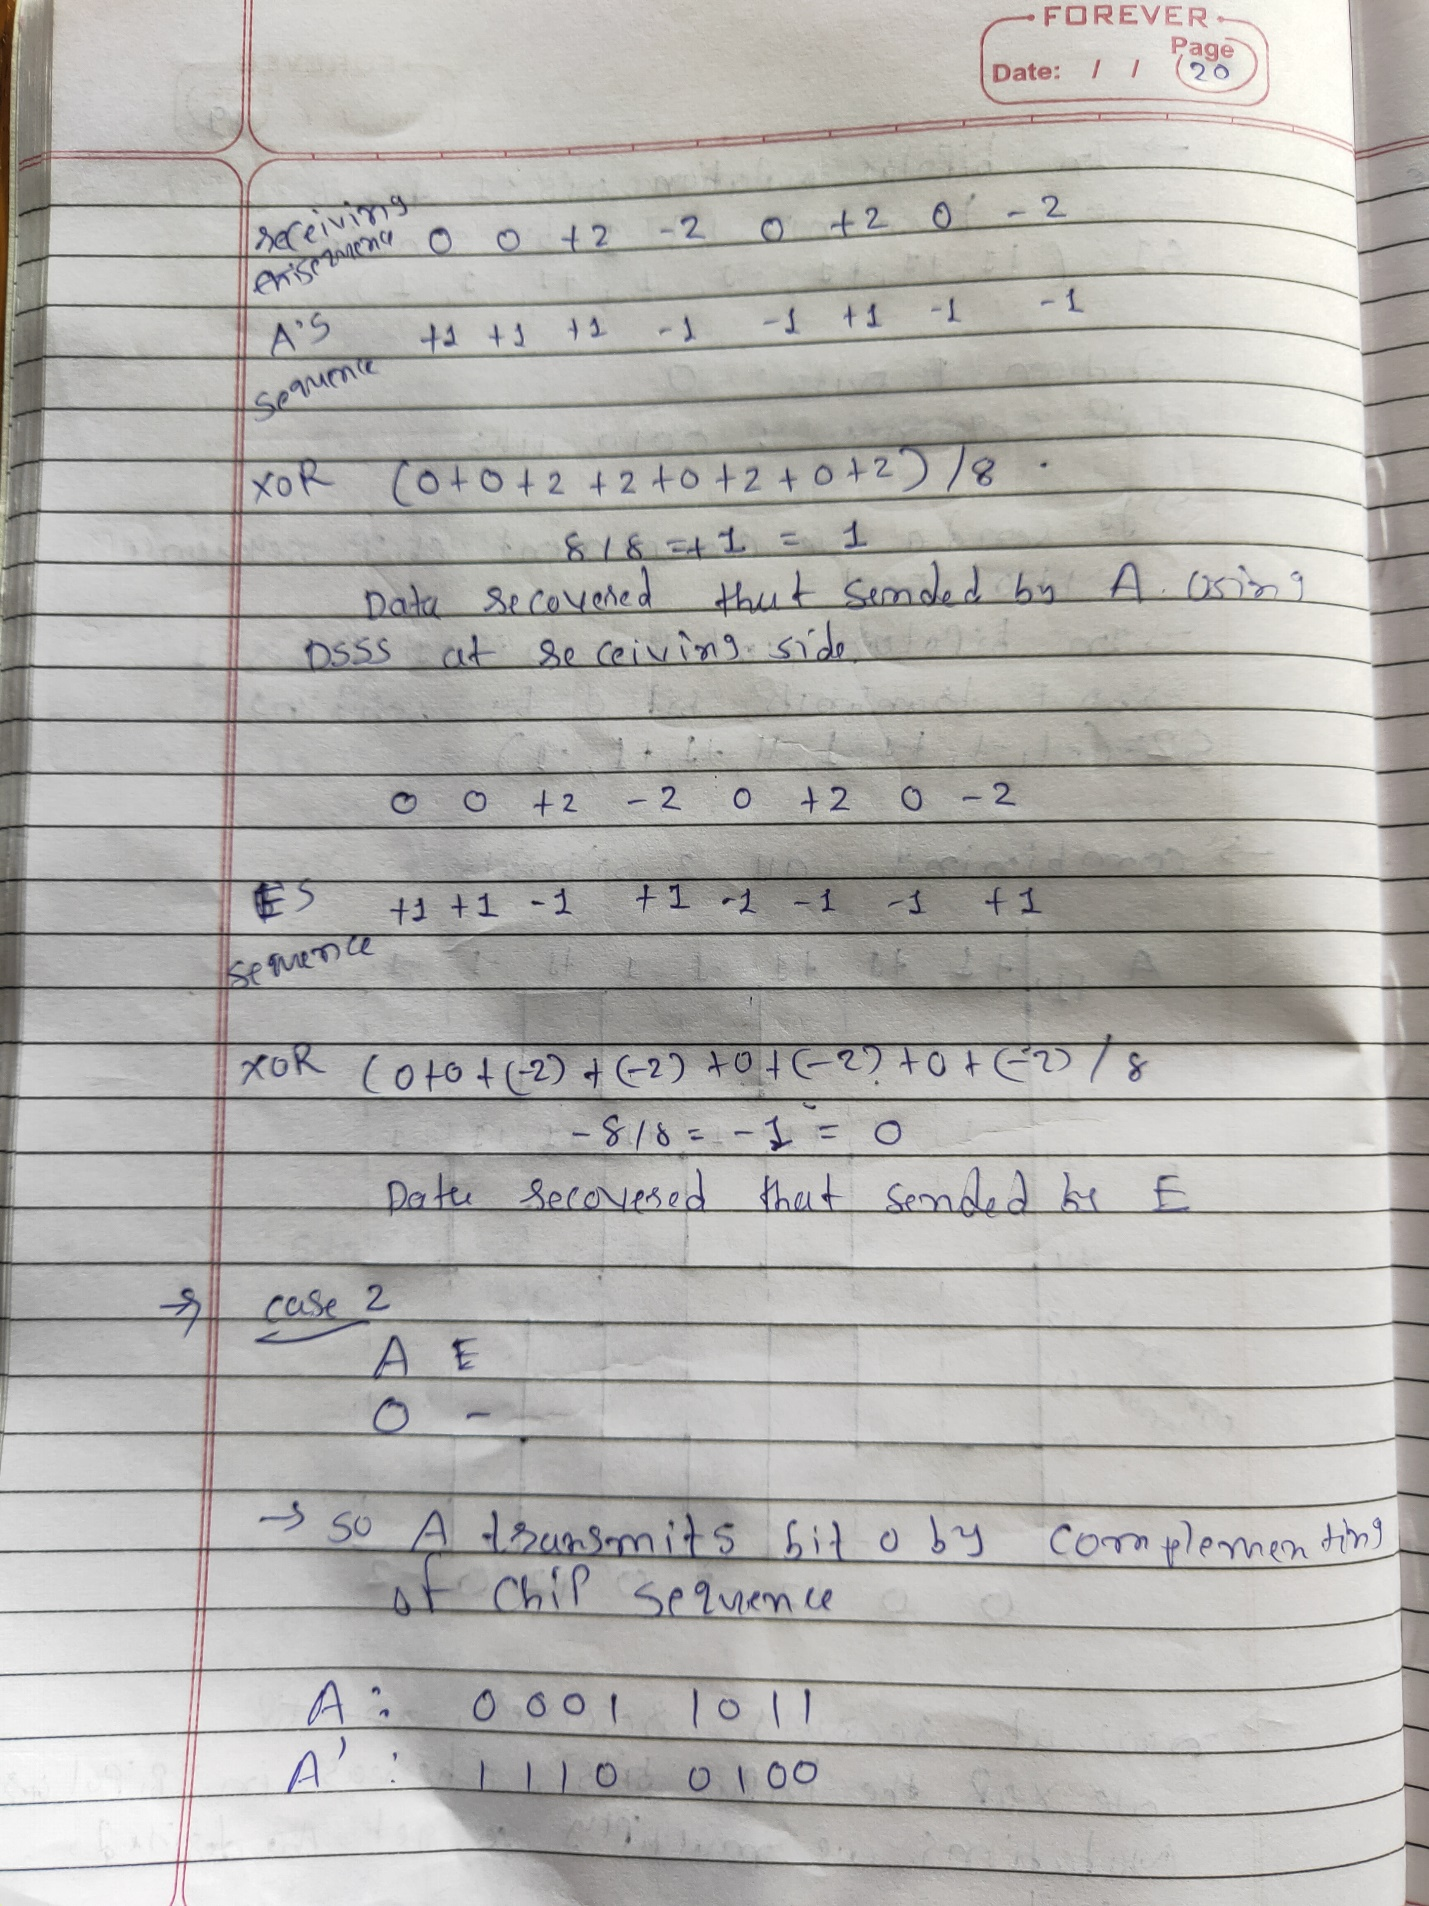 FOREVER
Page
Date: / / 20
receiving 0 0 +2 -2 0 +2 0 -2
A'S +1 +1 +1 -1 -1 +1 -1 -1
sequence
XOR (0+0+2+2+0+2+0+2)/8
8/8 =+1 = 1
Data recovered that sended by A using
DSSS at receiving side.
0 0 +2 -2 0 +2 0 -2
ES +1 +1 -1 +1 -1 -1 -1 +1
sequence
XOR (0+0+(-2)+(-2)+0+(-2)+0+(-2)/8
-8/8 = -1 = 0
Data recovered that sended by E
→ case 2
A E
0 -
→ so A transmits bit 0 by complementing
of chip sequence
A : 0001 1011
A' : 1110 0100